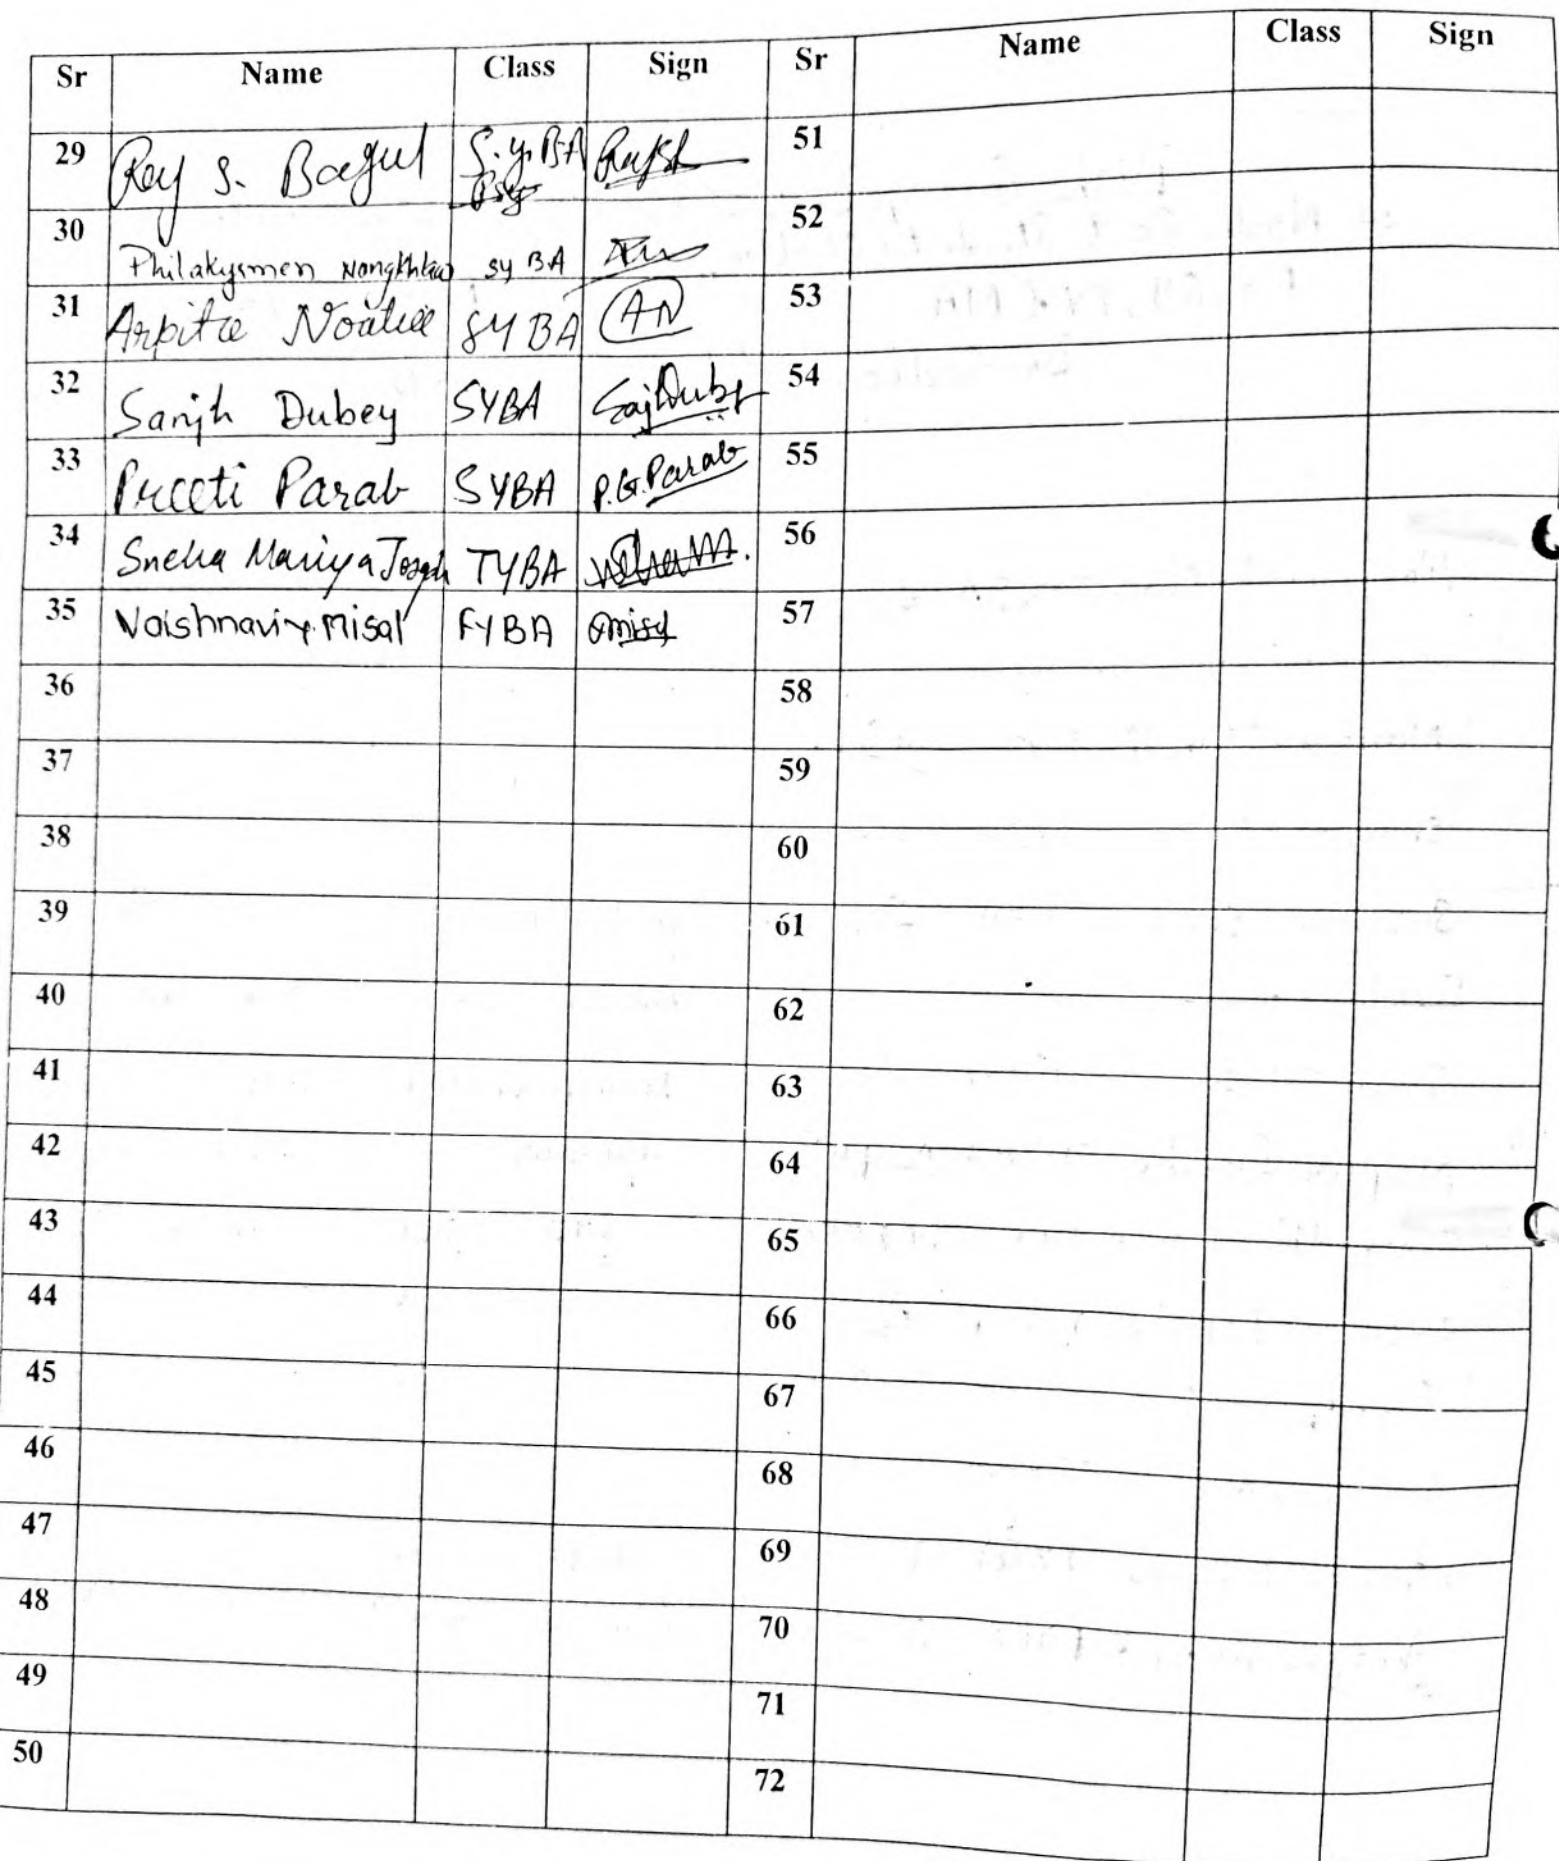 Sr Name Class Sign Sr Name Class Sign
29 S. Bagul S.Y.BA 51
Psy
30 Philakysmen SY BA 52
31 Arpita SYBA AN 53
32 Dubey SYBA 54
33 Preeti Parab SYBA P.G.Parab 55
34 Sneha Mariya Joseph TYBA 56
35 Vaishnavi Misal FYBA 57
36 58
37 59
38 60
39 61
40 62
41 63
42 64
43 65
44 66
45 67
46 68
47 69
48 70
49 71
50 72